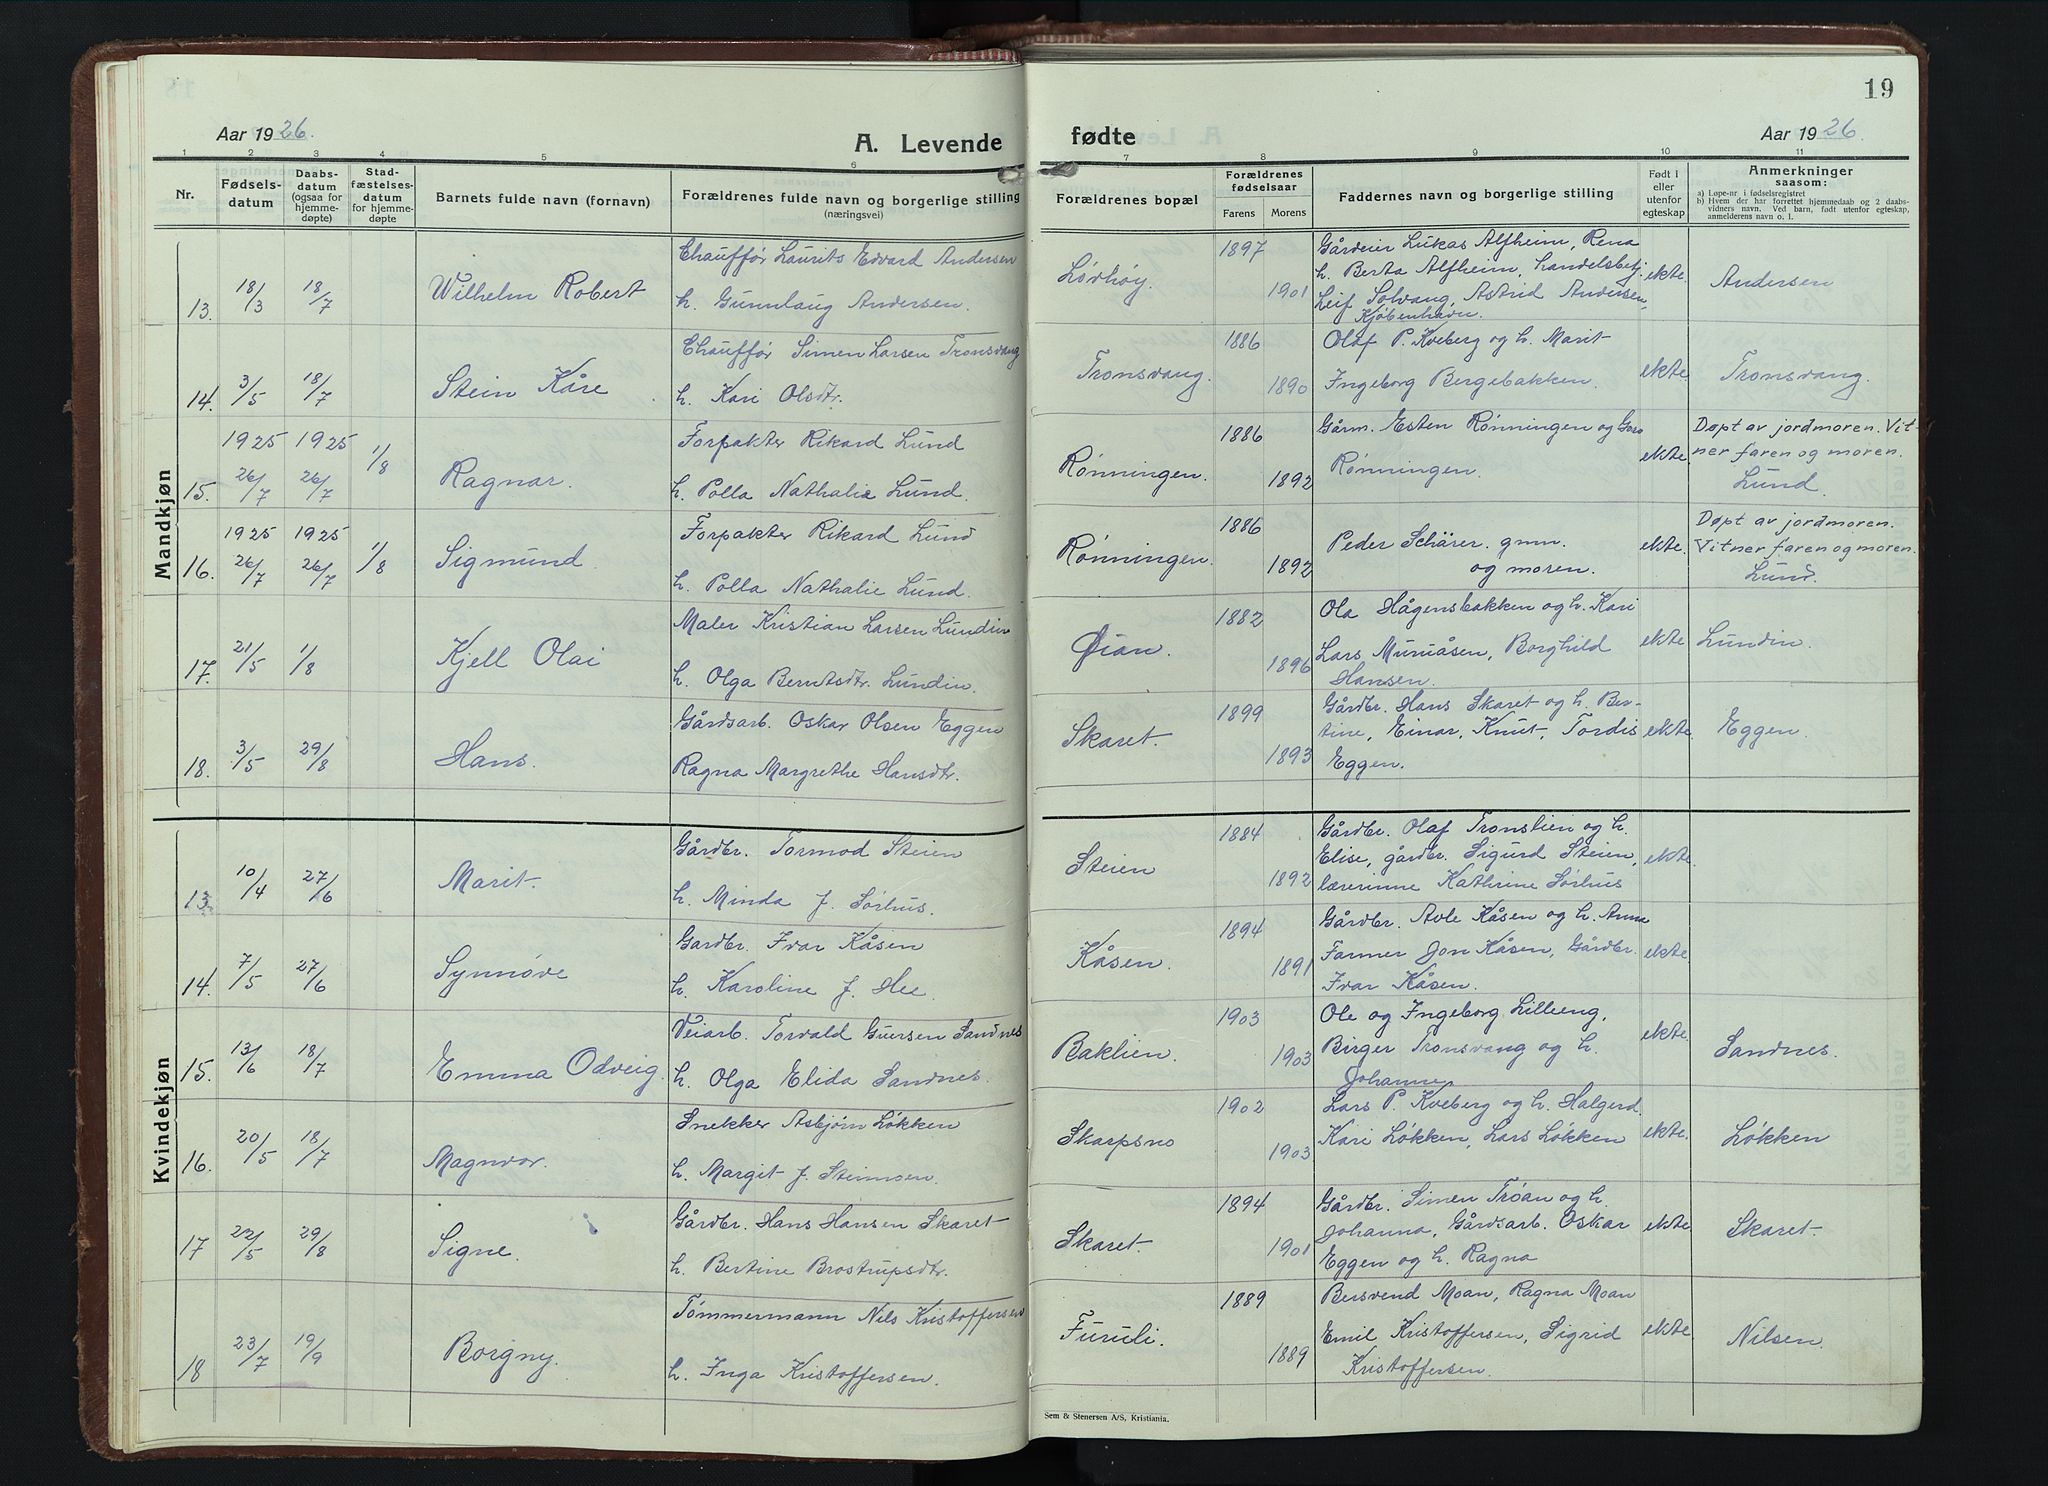 19
Aar 1926.
A. Levende
fødte
Aar 1926.
1 2 3 4 5 6 7 8 9 10 11
Nr.
Fødsels-
datum
Daabs-
datum
(ogsaa for
hjemme-
døpte)
Stad-
fæstelses-
datum
for hjemme-
døpte
Barnets fulde navn (fornavn)
Forældrenes fulde navn og borgerlige stilling
(næringsvei)
Forældrenes bopæl
Forældrenes
fødselsaar
Farens
Morens
Faddernes navn og borgerlige stilling
Født i
eller
utenfor
egteskap
Anmerkninger
saasom:
a) Løpe-nr. i fødselsregistret
b) Hvem der har forrettet hjemmedaab og 2 daabs-
vidners navn. Ved barn, født utenfor egteskap,
anmelderens navn o. l.
Mandkjøn
13. 18/3 18/7 Wilhelm Robert
Chauffør Laurits Edvard Andersen
h. Gunnlaug Andersen.
Løvhøy.
1897
1901
Gårdeier Lukas Alfheim, Rena
h. Berta Alfheim, handelsbetj.
Leif Solvang, Astrid Andersen,
Kjøbenhavn.
ekte.
Andersen
14. 3/5 18/7 Stein Kåre
Chauffør Simen Larsen Tronsvang
h. Kari Olsdtr.
Tronsvang.
1886
1890
Olaf P. Kveberg og h. Marit
Ingeborg Bergebakken.
ekte.
Tronsvang.
15. 1925 26/7 1925 26/7 1/8 Ragnar.
Forpakter Rikard Lund
h. Polla Nathalie Lund.
Rønningen.
1886
1892
Gårm. Esten Rønningen og Goro
Rønningen.
ekte.
Døpt av jordmoren. Vit-
ner faren og moren.
Lund.
16. 1925 26/7 1925 26/7 1/8 Sigmund.
Forpakter Rikard Lund
h. Polla Nathalie Lund.
Rønningen.
1886
1892
Peder Schärer. gmn.
og moren.
ekte.
Døpt av jordmoren.
Vitner faren og moren.
Lund.
17. 21/5 1/8 Kjell Olai
Maler Kristian Larsen Lundin
h. Olga Berntsdtr. Lundin.
Øian.
1882
1896
Ola Hågensbakken og h. Kari
Lars Muruåsen, Borghild
Hansen.
ekte
Lundin.
18. 3/5 29/8 Hans.
Gårdsarb. Oskar Olsen Eggen
Ragna Margrethe Hansdtr.
Skaret.
1899
1893
Gårdbr. Hans Skaret og h. Ber-
tine, Einar, Knut, Tordis
Eggen.
ekte.
Eggen.
Kvindekjøn
13. 10/4 27/6 Marit.
Gårdbr. Tormod Steien
h. Minda J. Sørhus.
Steien
1884
1892
Gårdbr. Olaf Tronslien og h.
Elise, gårdbr. Sigurd Steien,
lærerinne Kathrine Sørhus
ekte.
14. 7/5 27/6 Synnøve
Gardbr. Ivar Kåsen
h. Karoline J. Hee.
Kåsen.
1894
1891
Gårdbr. Avle Kåsen og h. Anna
Farmer Jon Kåsen, Gårdbr.
Ivar Kåsen.
ekte.
15. 13/6 18/7 Emma Odveig.
Veiarb. Torvald Guersen Sandnes
h. Olga Elida Sandnes.
Baklien.
1903
1903
Ole og Ingeborg Lilleeng,
Birger Tronsvang og h.
Johanne.
ekte.
Sandnes.
16. 20/5 18/7 Magnvor.
Snekker Asbjørn Løkken
h. Margit J. Steimoen.
Skarpsno
1902
1903
Lars P. Kveberg og h. Halgerd
Kari Løkken, Lars Løkken
ekte.
Løkken
17 22/5 29/8 Signe.
Gårdbr. Hans Hansen Skaret
h. Bertine Brostrupsdtr.
Skaret.
1894
1901
Gårdbr. Simen Trøan og h.
Johanna, Gårdsarb. Oskar
Eggen og h. Ragna
ekte
Skaret.
18 23/7 19/9 Borgny.
Tømmermann Nils Kristoffersen
h. Inga Kristoffersen.
Furuli.
1889
1889
Bersvend Moan, Ragna Moan
Emil Kristoffersen, Sigrid
Kristoffersen.
ekte.
Nilsen.
Sem & Stenersen A/S, Kristiania.